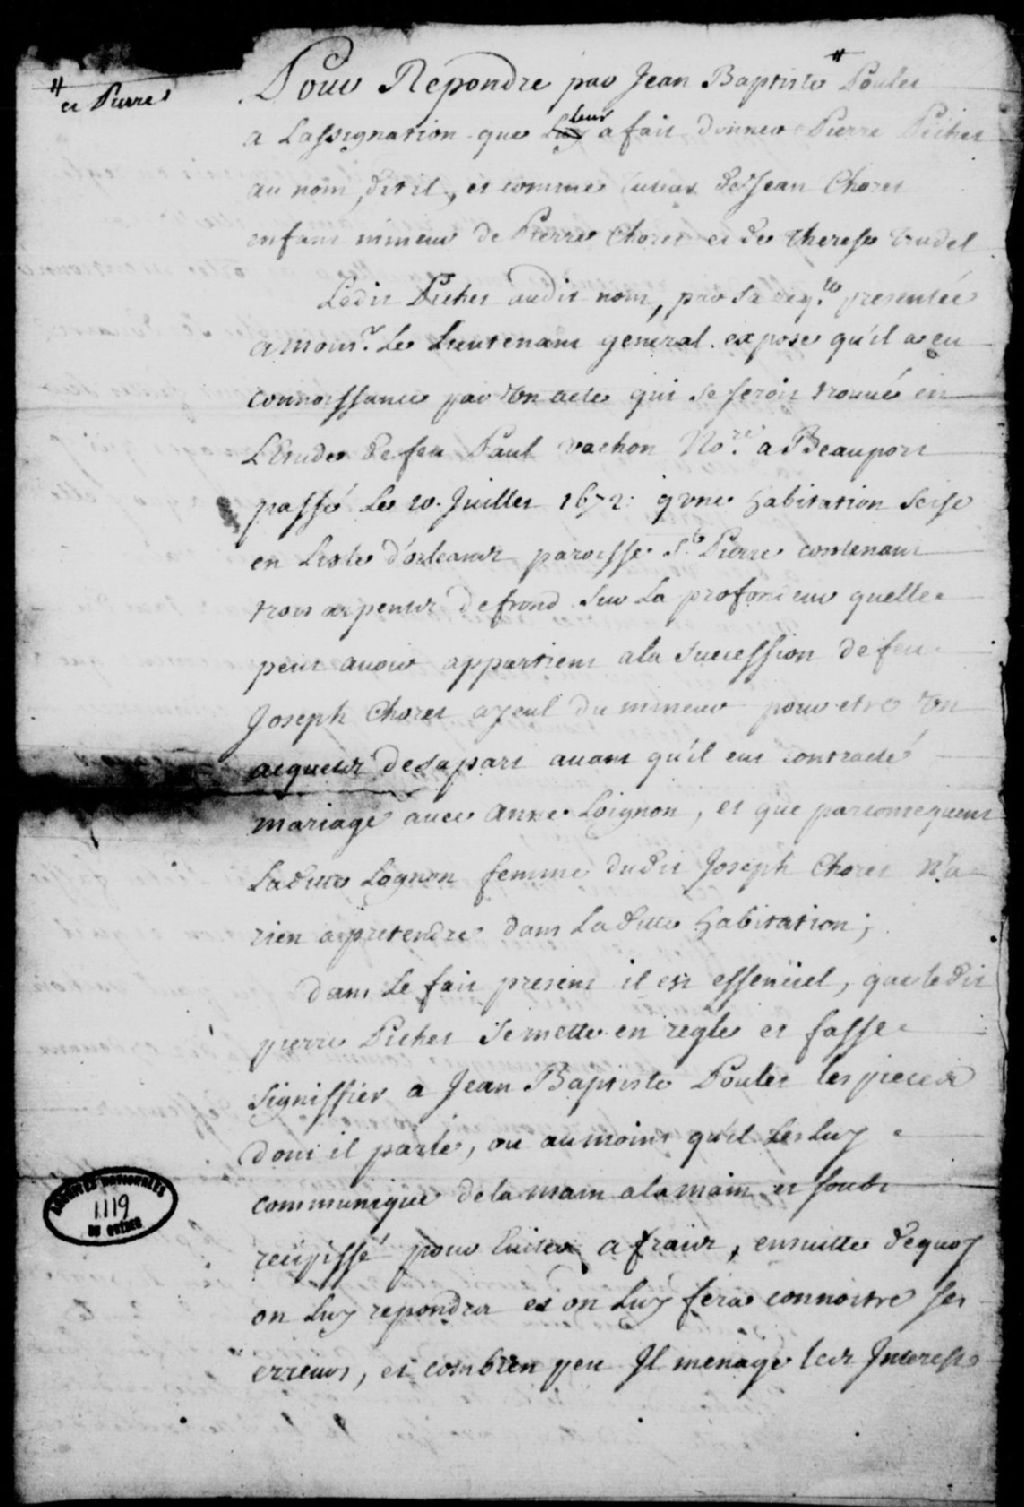 # et Pierre
Pour Repondre par Jean Baptiste # Poulet
a Lassignation que leur a fait donner Pierre Pichet
au nom, dit il, et comme tuteur de Jean Choret
enfant mineur de Pierre Choret et de therese trudel
Ledit Pichet audit nom, par sa req.te presentée
a mons.r Le Lieutenant general expose qu'il a eu
connoissance par un acte qui se seroit trouvé en
L'Etude de feu Paul vachon No.re a Beauport
passé Le 10. Juillet 1672. qune habitation scise
en Lisle d'orleans paroisse S.t Pierre contenant
trois arpents de frond sur La profondeur quelle
peut avoir appartient ala succession de feu
Joseph Choret ayeul du mineur pour etre un
acquest desapart avant qu'il eut contracté
mariage avec Anne Loignon, et que parconsequent
Laditte Lognon femme dudit Joseph Choret N'a
rien a pretendre dans Laditte habitation;
dans Le fait present il est essentiel, que ledit
pierre Pichet se mette en regle et fasse
signiffier a Jean Baptiste Poulet les pieces
dont il parle, ou aumoins qu'il Les luy
communique dela main ala main et sous
recipissé pour Eviter a fraix, ensuitte dequoy
on Luy repondra et on Luy fera connoitre ses
erreurs, et combien peu Il menage les Interest
ARCHIVES NATIONALES
1119
DU QUÉBEC